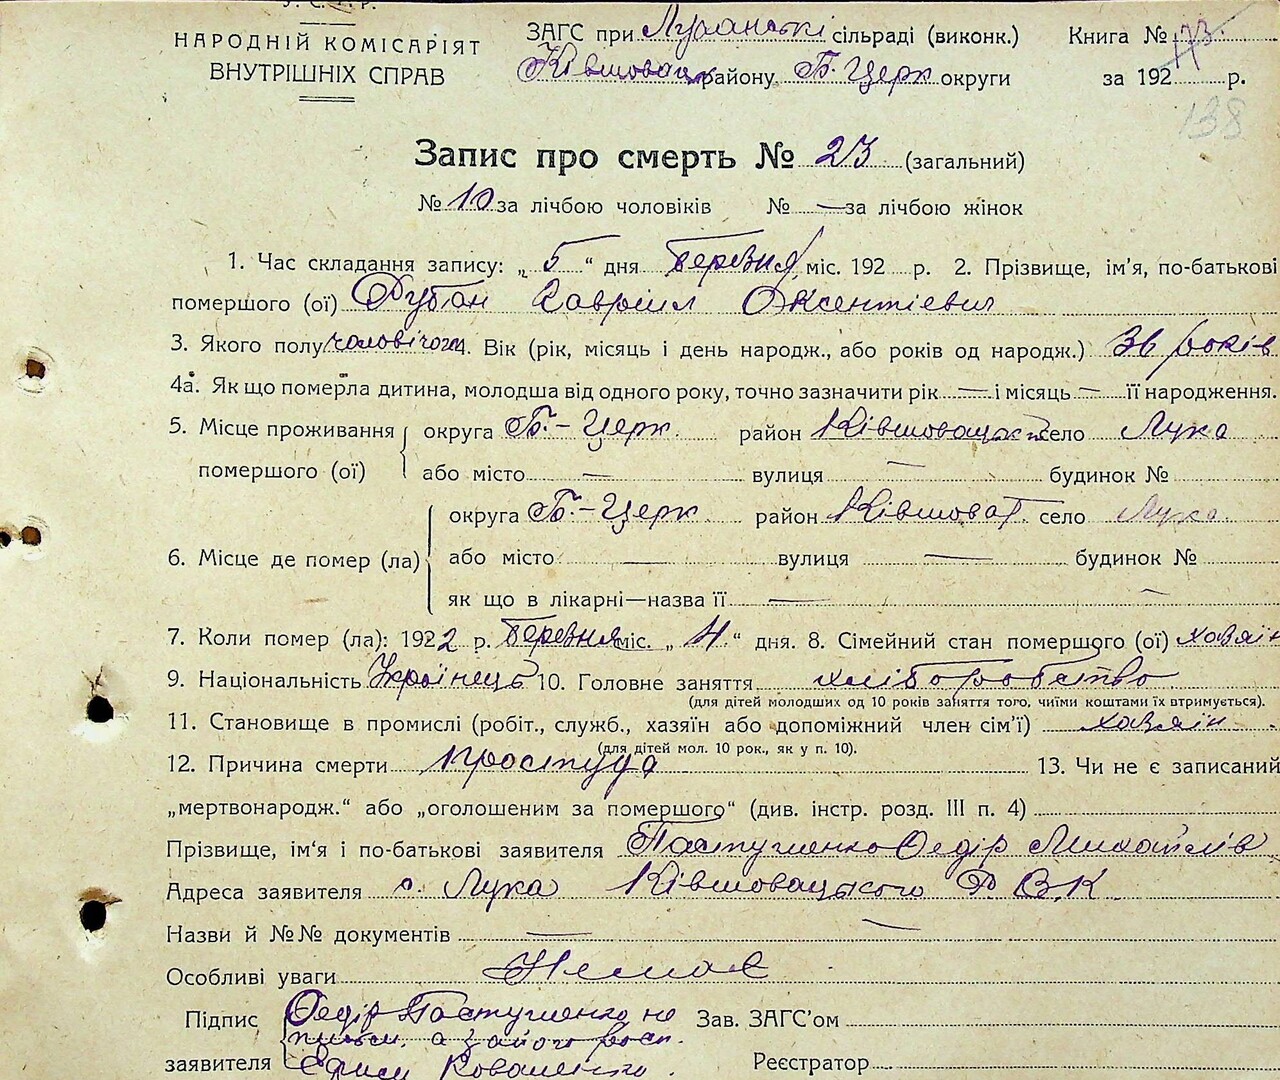 У. С. Р. Р.
НАРОДНІЙ КОМІСАРІЯТ
ВНУТРІШНІХ СПРАВ
ЗАГС при Луканські сільраді (виконк.)
Ківшовацьк району, Б. Церк округи
Книга № 173
за 192 р.
138
Запис про смерть № 23 (загальний)
№ 10 за лічбою чоловіків № — за лічбою жінок
1. Час складання запису: „ 5 “ дня березня міс. 192 р. 2. Прізвище, ім'я, по-батькові
помершого (ої) Рубан Гавриїл Оксентієвич
3. Якого полу чоловічого 4. Вік (рік, місяць і день народж., або років од народж.) 36 років
4а. Як що померла дитина, молодша від одного року, точно зазначити рік — і місяць — її народження.
5. Місце проживання округа Б.-Церк. район Ківшовацьк село Лука
помершого (ої) або місто — вулиця — будинок №
округа Б.-Церк район Ківшоват. село Лука.
6. Місце де помер (ла) або місто — вулиця — будинок №
як що в лікарні—назва її —
7. Коли помер (ла): 1922 р. березня міс. „ 4 “ дня. 8. Сімейний стан помершого (ої) хазяїн
9. Національність Українець 10. Головне заняття хліборобство
(для дітей молодших од 10 років заняття того, чиїми коштами їх втримується).
11. Становище в промислі (робіт., служб., хазяїн або допоміжний член сім'ї) хазяїн
(для дітей мол. 10 рок., як у п. 10).
12. Причина смерти простуда 13. Чи не є записаний
„мертвонародж.“ або „оголошеним за помершого“ (див. інстр. розд. III п. 4)
Прізвище, ім'я і по-батькові заявителя Пастушенко Федір Михайлів
Адреса заявителя с. Лука Ківшовацького Р. В. К.
Назви й №№ документів —
Особливі уваги Немає
Підпис Федір Пастушенко не Зав. ЗАГС'ом
а за його росп.
заявителя Коваленко. Реєстратор